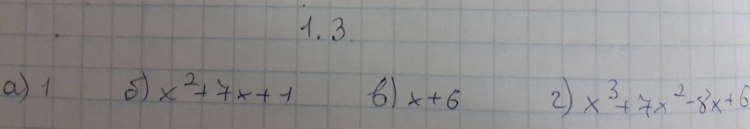 1.3.
а) 1 б) x²+7x+1 в) x+6 г) x³+7x²-8x+6